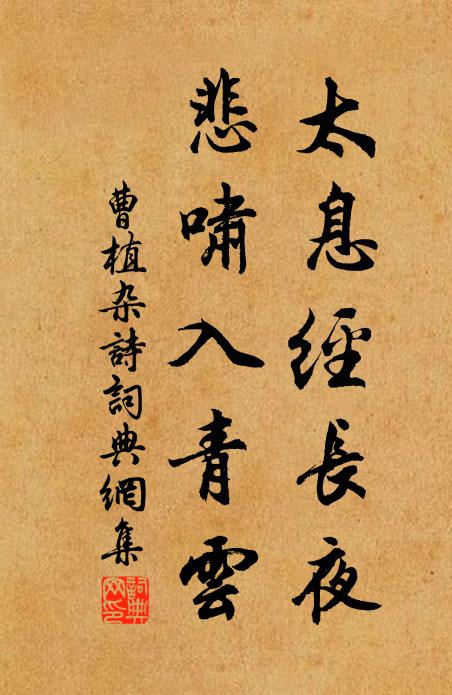 太息經長夜
悲嘯入青雲
曹植杂詩詞典網集
詞典網印